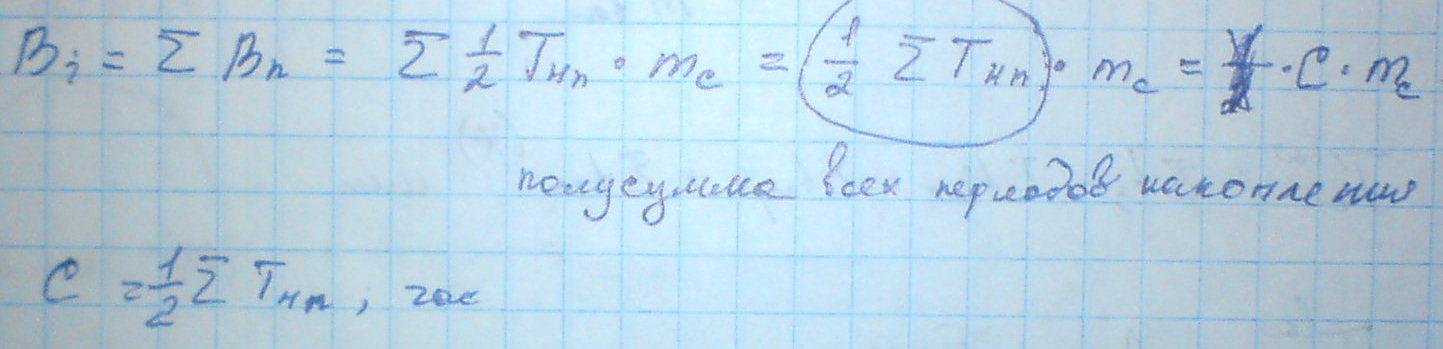 Bᵢ = Σ Bₙ = Σ 1/2 Tнп · mс = (1/2 Σ Tнп) · mс = · C · mс
полусумма всех периодов накопления
C = 1/2 Σ Tнп, час